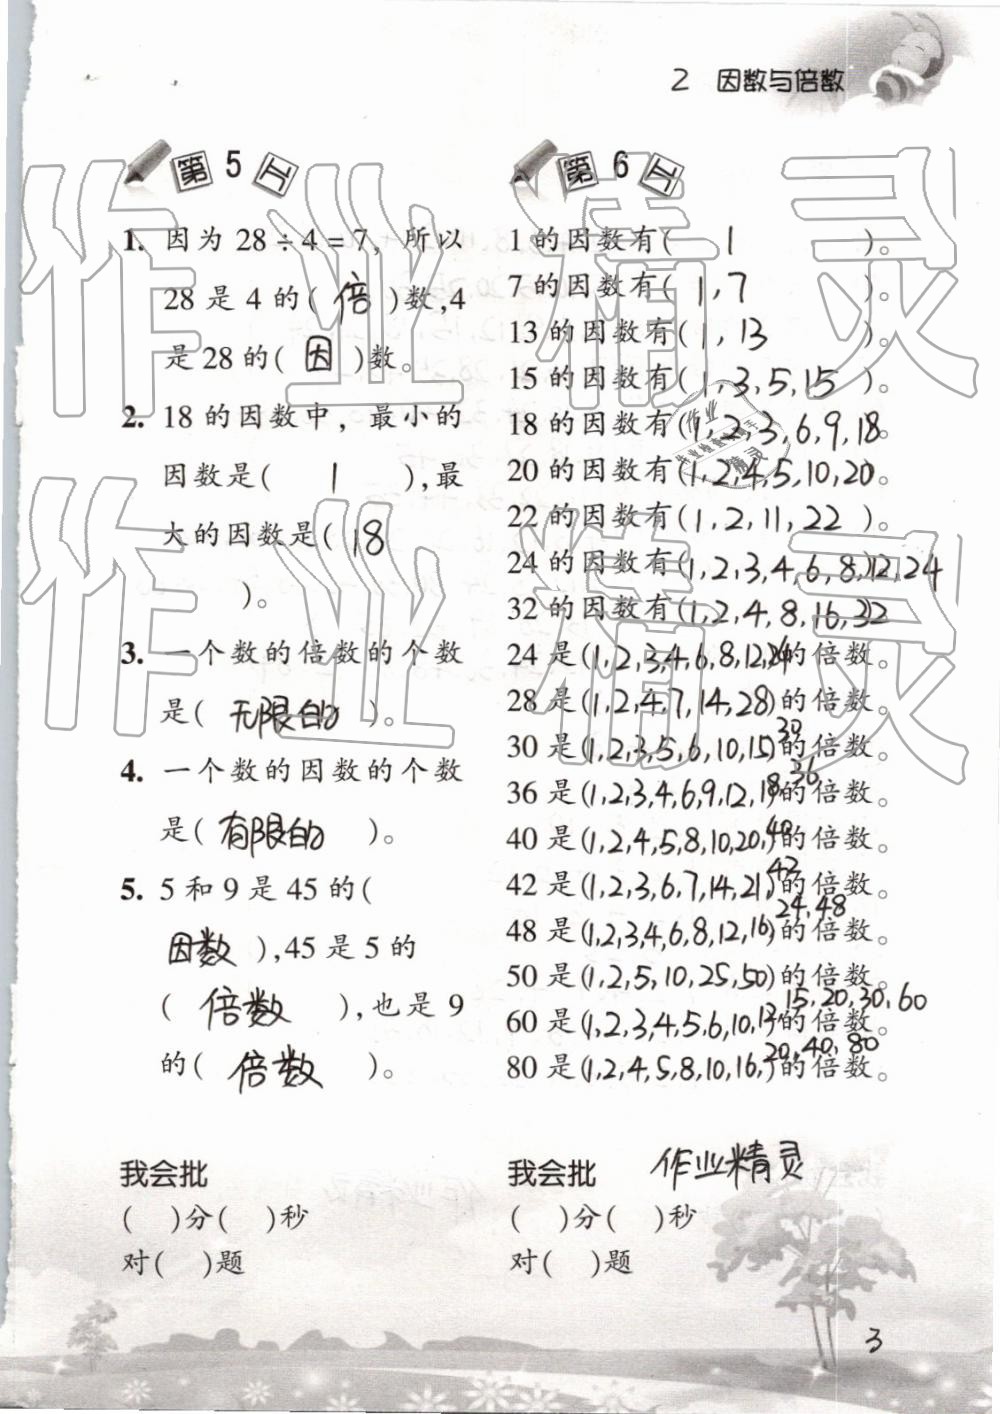 2 因数与倍数
第5工
1. 因为 28÷4=7, 所以
28 是 4 的( 倍 )数,4
是 28 的( 因 )数。
2. 18 的因数中, 最小的
因数是( 1 ),最
大的因数是( 18
)。
3. 一个数的倍数的个数
是( 无限的 )。
4. 一个数的因数的个数
是( 有限的 )。
5. 5 和 9 是 45 的(
因数 ),45 是 5 的
( 倍数 ),也是 9
的( 倍数 )。
我会批
( )分( )秒
对( )题
第6工
1 的因数有( 1 )。
7 的因数有( 1,7 )。
13 的因数有( 1, 13 )。
15 的因数有( 1,3,5,15 )。
18 的因数有(1,2,3,6,9,18。
20 的因数有(1,2,4,5,10,20)。
22 的因数有(1,2,11,22 )。
24 的因数有(1,2,3,4,6,8,)12,24
32 的因数有(1,2,4,8,16,32
24 是(1,2,3,4,6,8,12,24)的倍数。
28 是(1,2,4,7,14,28)的倍数。
30 是(1,2,3,5,6,10,15)30的倍数。
36 是(1,2,3,4,6,9,12,18,36)的倍数。
40 是(1,2,4,5,8,10,20,40)的倍数。
42 是(1,2,3,6,7,14,21,)42的倍数。
48 是(1,2,3,4,6,8,12,16)24,48的倍数。
50 是(1,2,5,10,25,50)的倍数。
60 是(1,2,3,4,5,6,10,12)15,20,30,60的倍数。
80 是(1,2,4,5,8,10,16,)20,40,80的倍数。
我会批 作业精灵
( )分( )秒
对( )题
3
作业精灵
作业精灵